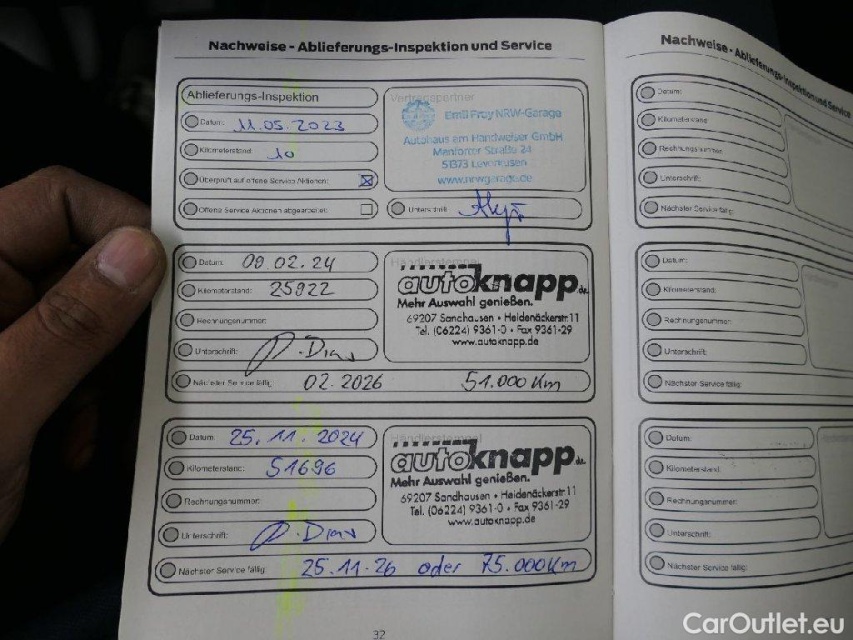 Nachweise - Ablieferungs-Inspektion und Service
Ablieferungs-Inspektion
Datum: 11.05.2023
Kilometerstand: 10
Überprüft auf offene Service Aktionen: ☒
Offene Service Aktionen abgearbeitet: ☐
Vertragspartner
Emil Frey NRW-Garage
Autohaus am Handweiser GmbH
Manforter Straße 24
51373 Leverkusen
www.nrwgarage.de
Unterschrift:
Datum: 09.02.24
Kilometerstand: 25922
Rechnungsnummer:
Unterschrift:
Nächster Service fällig: 02.2026 51.000 Km
Händlerstempel
autoknapp.de
Mehr Auswahl genießen.
69207 Sandhausen • Heidenäckerstr.11
Tel. (06224) 9361-0 • Fax 9361-29
www.autoknapp.de
Datum: 25.11.2024
Kilometerstand: 51696
Rechnungsnummer:
Unterschrift:
Nächster Service fällig: 25.11.26 oder 75.000Km
Händlerstempel
autoknapp.de
Mehr Auswahl genießen.
69207 Sandhausen • Heidenäckerstr.11
Tel. (06224) 9361-0 • Fax 9361-29
www.autoknapp.de
32
Nachweise - Ablieferungs-Inspektion und Service
Datum:
Kilometerstand:
Rechnungsnummer:
Unterschrift:
Nächster Service fällig:
Datum:
Kilometerstand:
Rechnungsnummer:
Unterschrift:
Nächster Service fällig:
Datum:
Kilometerstand:
Rechnungsnummer:
Unterschrift:
Nächster Service fällig:
CarOutlet.eu